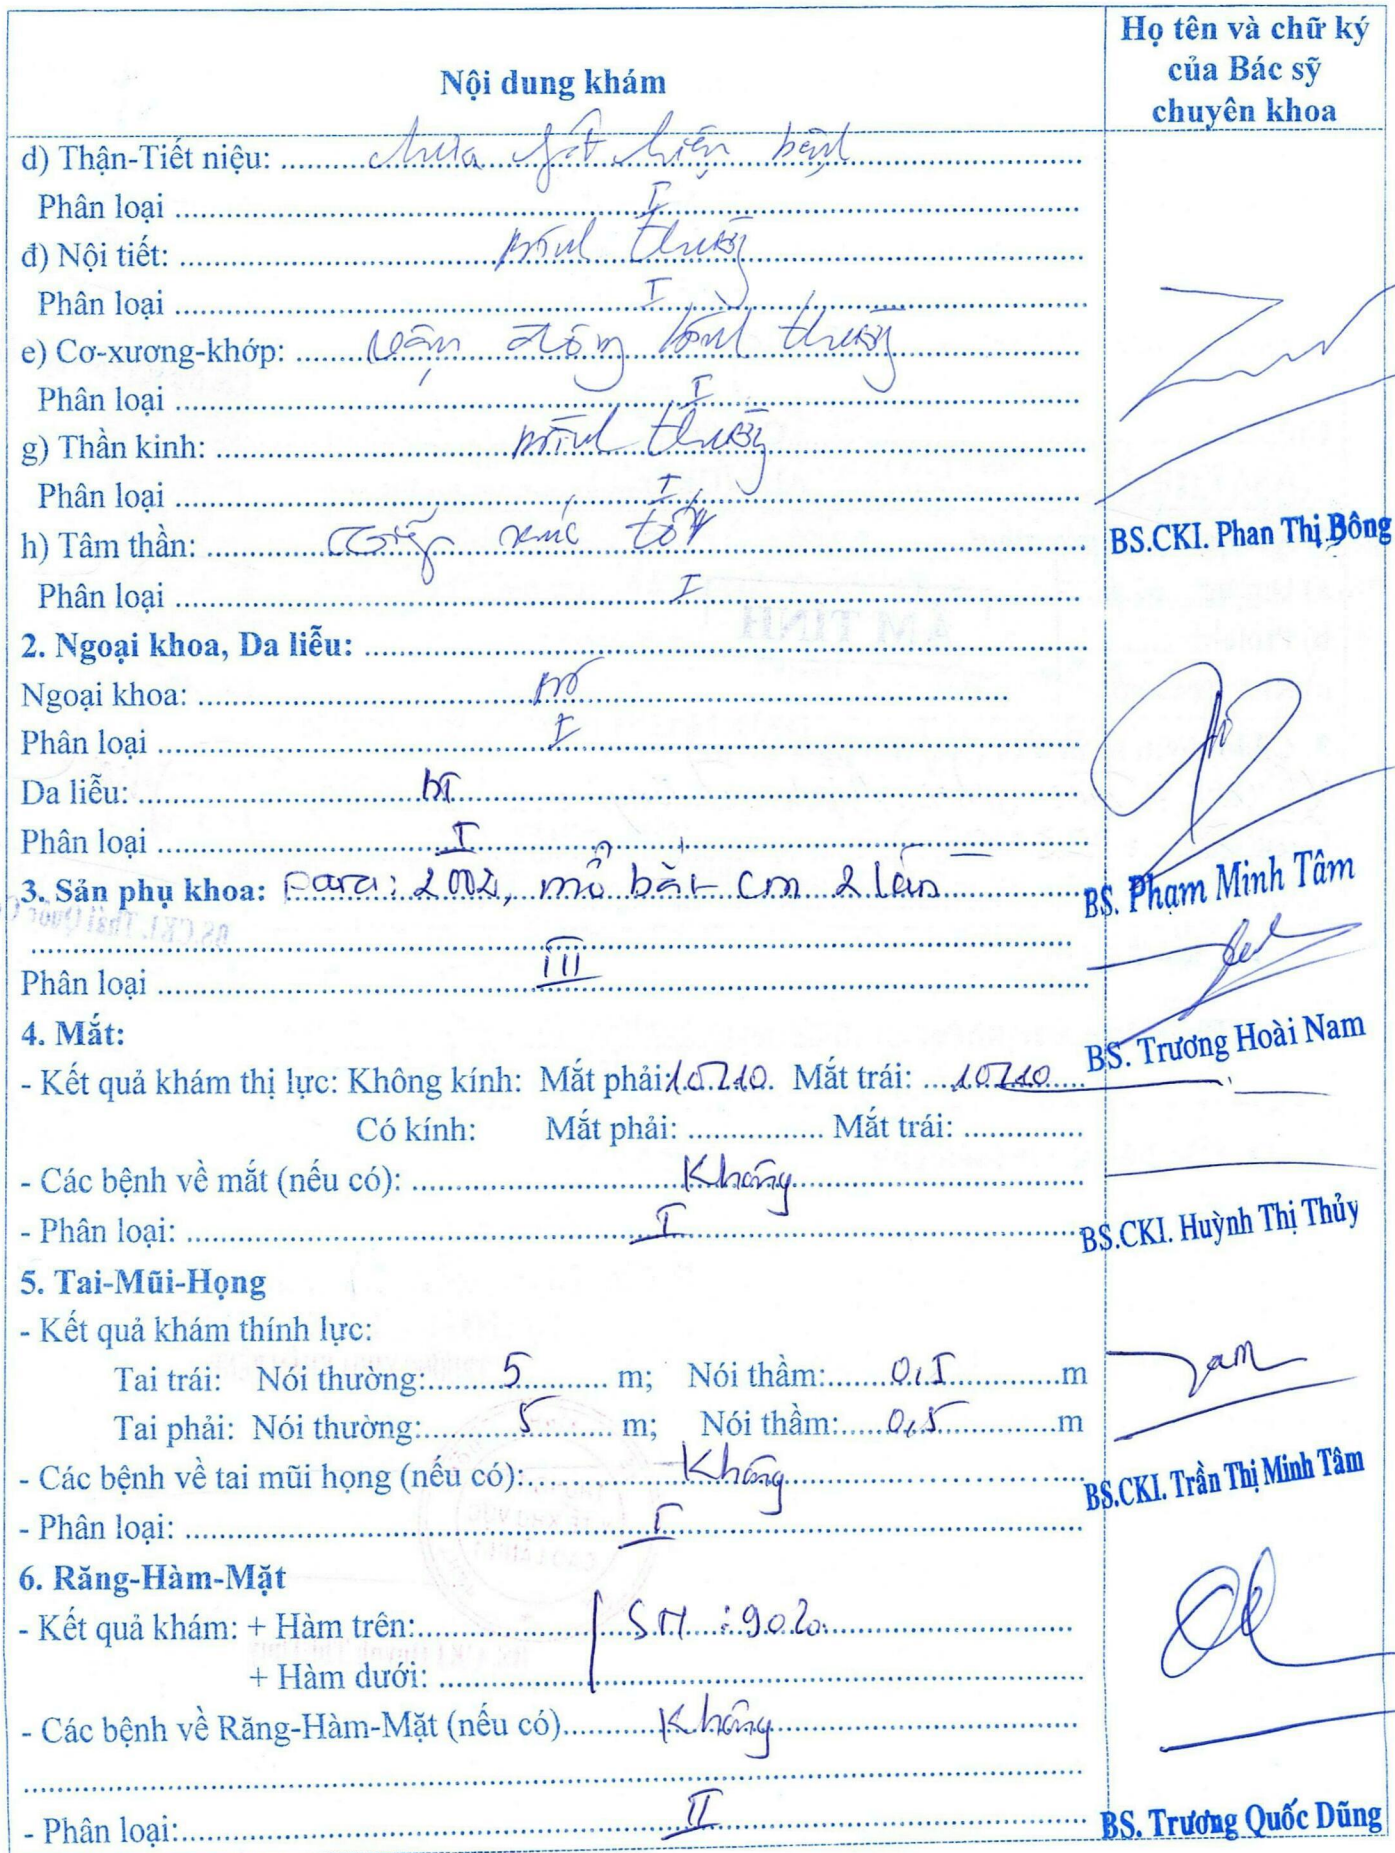 Nội dung khám
Họ tên và chữ ký
của Bác sỹ
chuyên khoa
d) Thận-Tiết niệu: chưa phát hiện bệnh
Phân loại I
đ) Nội tiết: bình thường
Phân loại I
e) Cơ-xương-khớp: vận động bình thường
Phân loại I
g) Thần kinh: bình thường
Phân loại I
h) Tâm thần: tiếp xúc tốt
Phân loại I
BS.CKI. Phan Thị Bông
2. Ngoại khoa, Da liễu:
Ngoại khoa:
Phân loại I
Da liễu: bt
Phân loại I
3. Sản phụ khoa: Para: 2002, mổ bắt con 2 lần
BS. Phạm Minh Tâm
Phân loại III
4. Mắt:
BS. Trương Hoài Nam
- Kết quả khám thị lực: Không kính: Mắt phải: 10/10. Mắt trái: 10/10
Có kính: Mắt phải: Mắt trái:
- Các bệnh về mắt (nếu có): Không
- Phân loại: I
BS.CKI. Huỳnh Thị Thủy
5. Tai-Mũi-Họng
- Kết quả khám thính lực:
Tai trái: Nói thường: 5 m; Nói thầm: 0,5 m
Tai phải: Nói thường: 5 m; Nói thầm: 0,5 m
- Các bệnh về tai mũi họng (nếu có): Không
BS.CKI. Trần Thị Minh Tâm
- Phân loại: I
6. Răng-Hàm-Mặt
- Kết quả khám: + Hàm trên: SN: 90%
+ Hàm dưới:
- Các bệnh về Răng-Hàm-Mặt (nếu có) Không
- Phân loại: II
BS. Trương Quốc Dũng